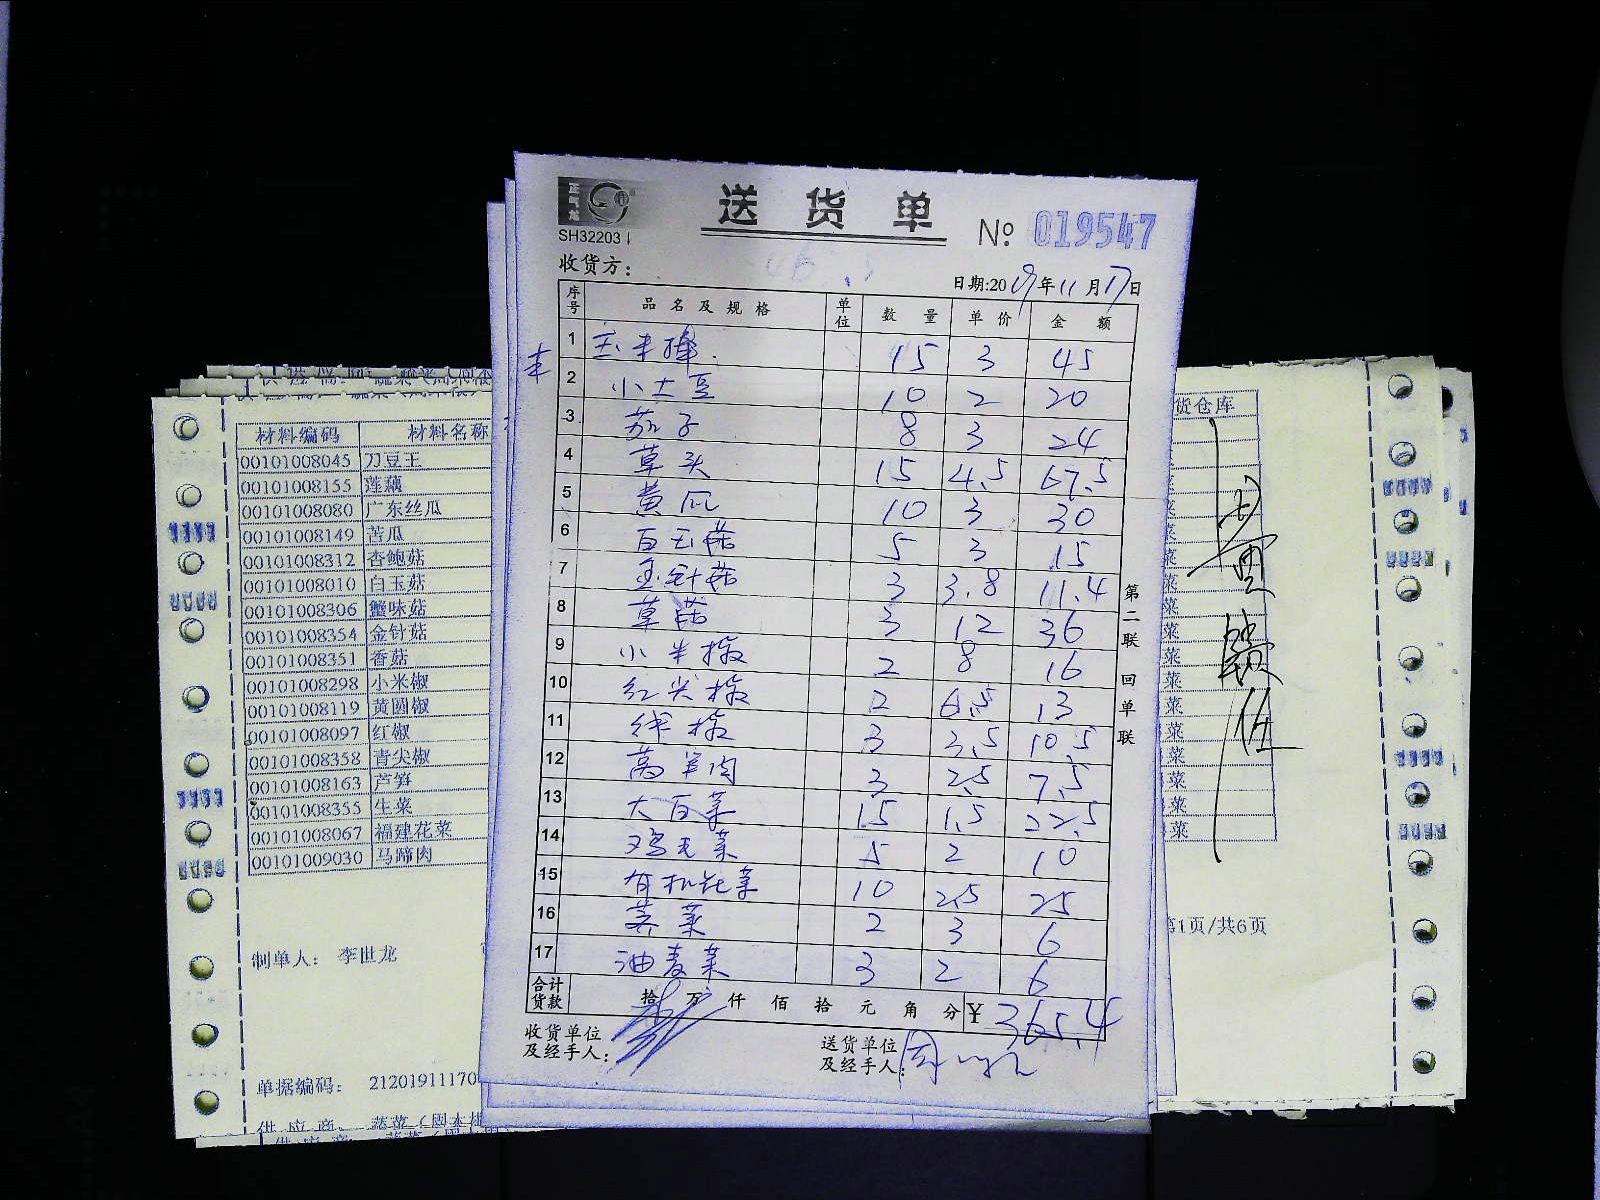 正气龙
SH32203
送 货 单
№ 019547
收货方:
日期:2019年11月17日
序号 品名及规格 单位 数量 单价 金额
1 15 3 45
2 小土豆 10 2 20
3 茄子 8 3 24
4 草头 15 4.5 67.5
5 黄瓜 10 3 30
6 白玉菇 5 3 15
7 金针菇 3 3.8 11.4
8 草菇 3 12 36
9 小米椒 2 8 16
10 红尖椒 2 6.5 13
11 线椒 3 3.5 10.5
12 莴笋肉 3 2.5 7.5
13 大白菜 15 1.5 22.5
14 鸡毛菜 5 2 10
15 有机花菜 10 2.5 25
16 菜 2 3 6
17 油麦菜 3 2 6
合计货款 拾 万 仟 佰 拾 元 角 分 ¥ 365.4
收货单位及经手人:
送货单位及经手人:
第二联 回单联
材料编码 材料名称
00101008045 刀豆王
00101008155 莲藕
00101008080 广东丝瓜
00101008149 苦瓜
00101008312 杏鲍菇
00101008010 白玉菇
00101008306 蟹味菇
00101008354 金针菇
00101008351 香菇
00101008298 小米椒
00101008119 黄圆椒
00101008097 红椒
00101008358 青尖椒
00101008163 芦笋
00101008355 生菜
00101008067 福建花菜
00101009030 马蹄肉
制单人: 李世龙
单据编码: 2120191117
供应商: 蔬菜(周本
货仓库
菜
菜
菜
菜
菜
菜
菜
第1页/共6页